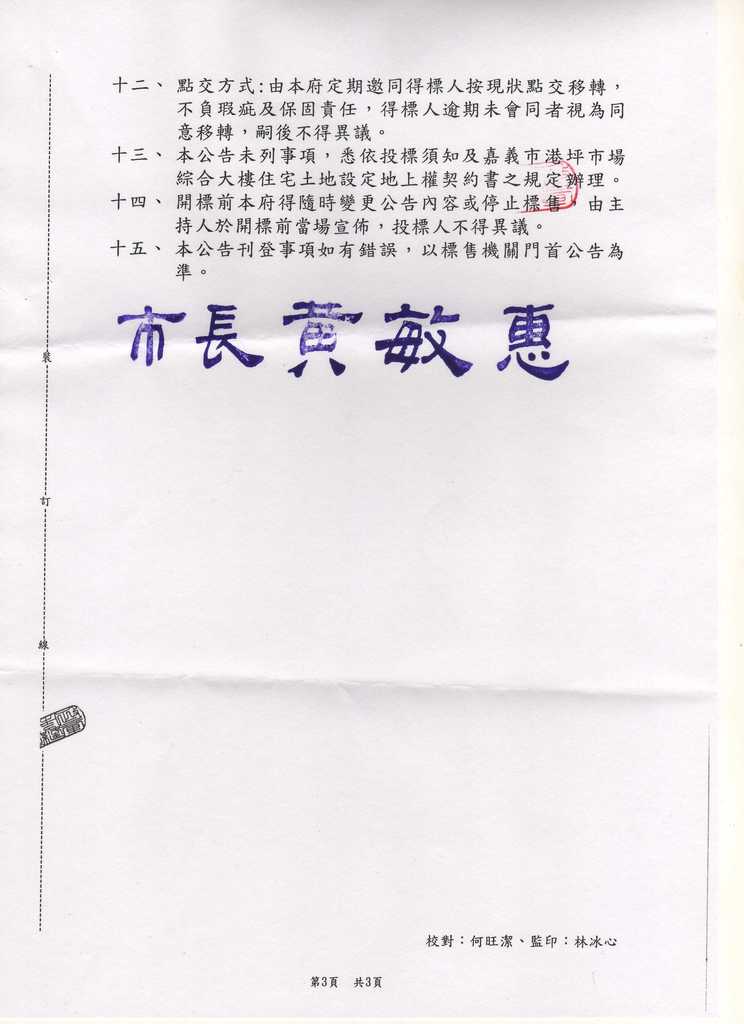 十二、點交方式:由本府定期邀同得標人按現狀點交移轉，
不負瑕疵及保固責任，得標人逾期未會同者視為同
意移轉，嗣後不得異議。
十三、本公告未列事項，悉依投標須知及嘉義市港坪市場
綜合大樓住宅土地設定地上權契約書之規定辦理。
十四、開標前本府得隨時變更公告內容或停止標售，由主
持人於開標前當場宣佈，投標人不得異議。
十五、本公告刊登事項如有錯誤，以標售機關門首公告為
準。
市長黃敏惠
裝
訂
線
校對：何旺潔、監印：林冰心
第3頁 共3頁